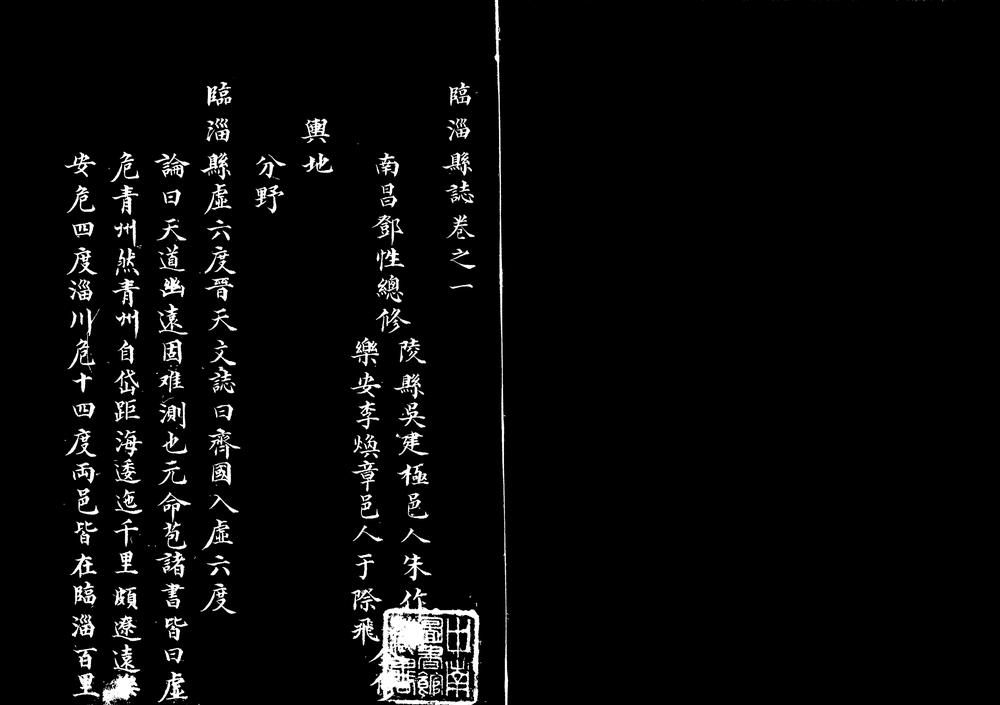 臨淄縣誌卷之一
南昌鄧性總修
陵縣吳建極邑人朱作
樂安李煥章邑人于際飛
輿地
分野
臨淄縣虛六度晉天文誌曰齊國入虛六度
論曰天道幽遠固难測也元命苞諸書皆曰虛
危青州然青州自岱距海逶迤千里頗遼遠
安危四度淄川危十四度兩邑皆在臨淄百里